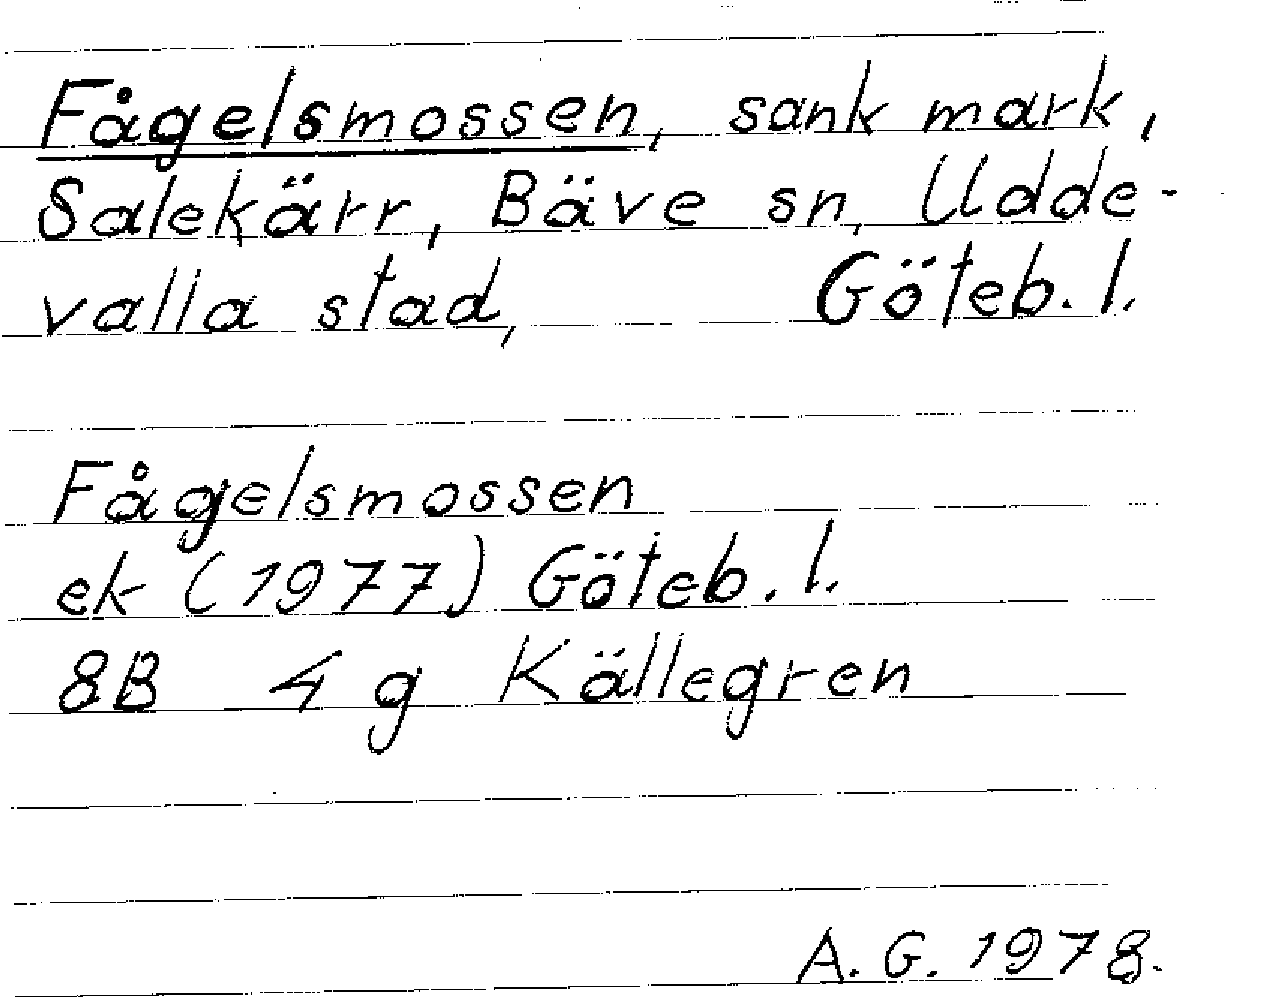 Fågelsmossen, sank mark,
Salekärr, Bäve sn, Udde-
valla stad, Göteb. l.
Fågelsmossen
ek (1977) Göteb. l.
8B 4 g Källegren
A. G. 1978.